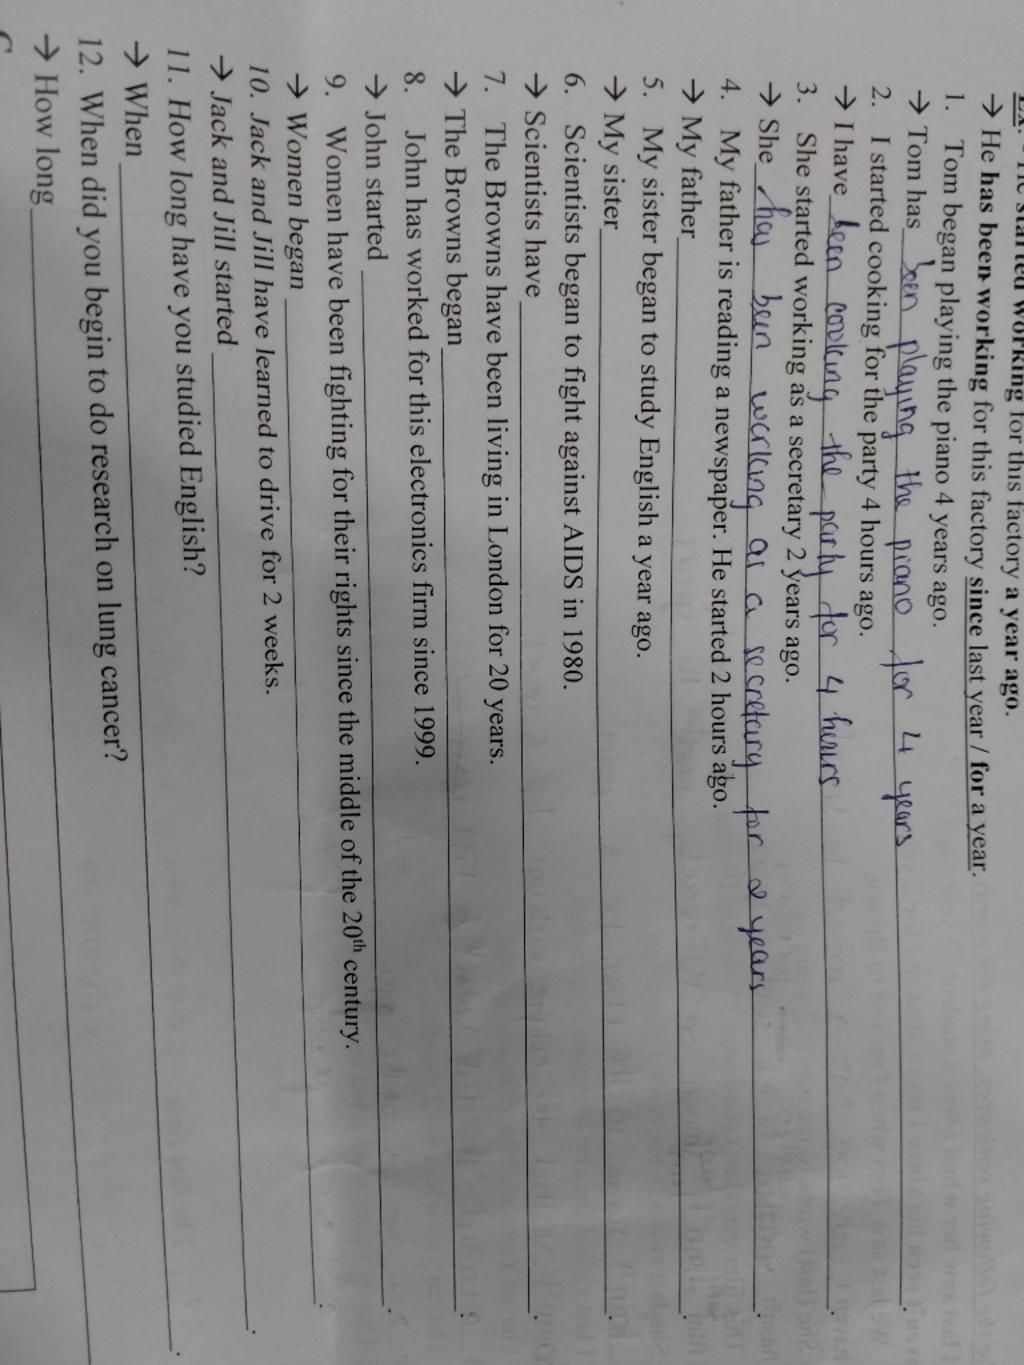 He started working for this factory a year ago.
→ He has been working for this factory since last year / for a year.
1. Tom began playing the piano 4 years ago.
→ Tom has been playing the piano for 4 years.
2. I started cooking for the party 4 hours ago.
→ I have been cooking the party for 4 hours.
3. She started working as a secretary 2 years ago.
→ She has been working as a secretary for 2 years.
4. My father is reading a newspaper. He started 2 hours ago.
→ My father .
5. My sister began to study English a year ago.
→ My sister .
6. Scientists began to fight against AIDS in 1980.
→ Scientists have .
7. The Browns have been living in London for 20 years.
→ The Browns began .
8. John has worked for this electronics firm since 1999.
→ John started .
9. Women have been fighting for their rights since the middle of the 20th century.
→ Women began .
10. Jack and Jill have learned to drive for 2 weeks.
→ Jack and Jill started .
11. How long have you studied English?
→ When .
12. When did you begin to do research on lung cancer?
→ How long